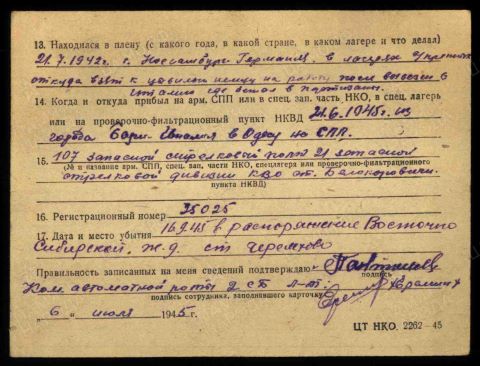 13. Находился в плену (с какого года, в какой стране, в каком лагере и что делал)
21.7.1942 г. г. Германия, в лагерях в/пленных
откуда взят к цивильному немцу на работу после вывезен в
Италию где в партизаны.
14. Когда и откуда прибыл на арм. СПП или в спец. зап. часть НКО, в спец. лагерь
или на проверочно-фильтрационный пункт НКВД 21.6.1945 г. из
города Бари Италия в Одессу на СПП.
15. 107 запасной стрелковый полк 21 запасной
(№ и название арм. СПП, спец. зап. части НКО, спецлагеря или проверочно-фильтрационного
стрелковой дивизии КВО ст. Белокоровичи.
пункта НКВД)
16. Регистрационный номер 35025
17. Дата и место убытия 16.9.45 в распоряжение Восточно
Сибирской ж.д. ст Черемхово
Правильность записанных на меня сведений подтверждаю
подпись
Ком. автоматной роты 2 СБ Л-т.
подпись сотрудника, заполнявшего карточку
„ 6 " июля 1945 г.
ЦТ НКО. 2262—45